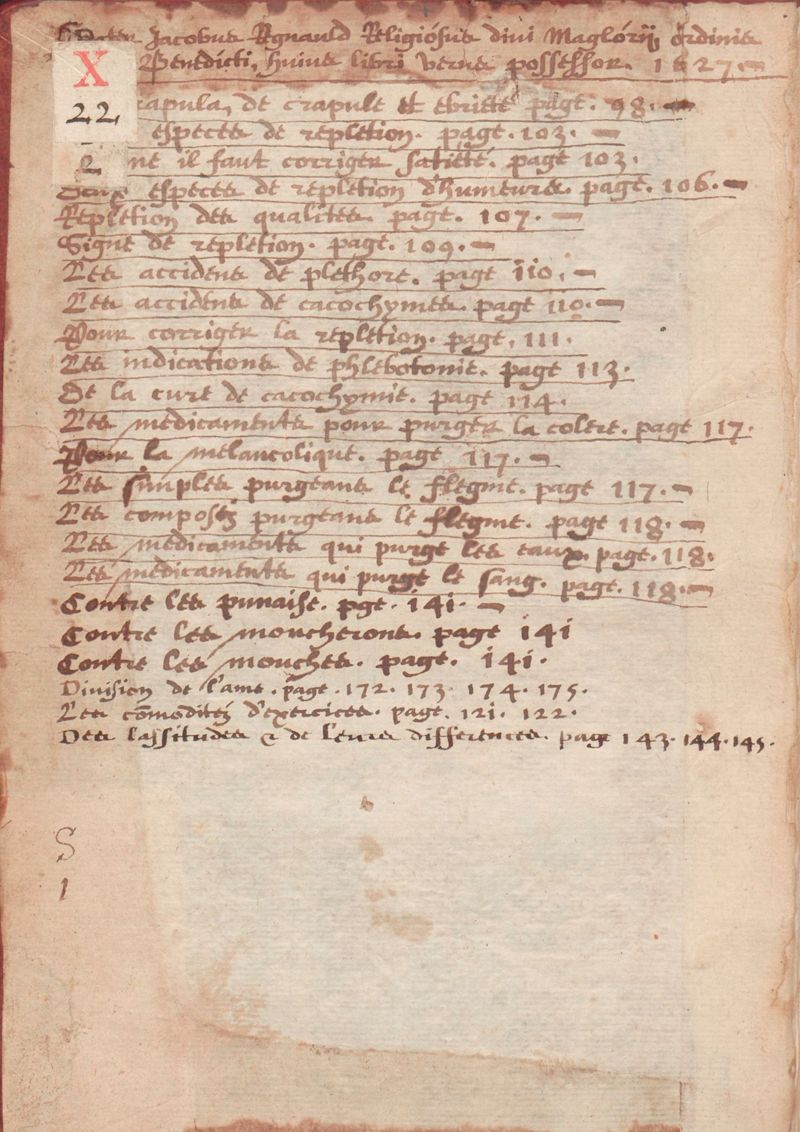 Frater Jacobus Regnauld Religiosus divi Maglorii ordinis
Benedicti, huius libri verus possessor. 1627.
X
22
crapula, de crapule et ebrieté page. 98.
especes de repletion. page. 103.
il faut corriger satieté. page 103.
Deux especes de repletion d'humeurs. page. 106.
Repletion des qualites. page. 107.
Signe de repletion. page. 109.
Les accidens de plethore. page 110.
Les accidens de cacochymes. page 110.
Pour corriger la repletion. page. 111.
Les indications de phlebotomie. page 113.
De la cure de cacochymie. page 114.
Les medicaments pour purger la colere. page 117.
Pour la melancolique. page 117.
Les simples purgeans le flegme. page 117.
Les composez purgeans le flegme. page 118.
Les medicaments qui purge les eaux. page. 118.
Les medicaments qui purge le sang. page. 118.
Contre les punaise. pge. 141.
Contre les moucherons. page 141
Contre les mouches. page. 141.
Division de l'ame. page. 172. 173. 174. 175.
Les cōmoditez d'exercices. page. 121. 122.
Des lassitudes & de leurs differences. page 143. 144. 145.
S
1